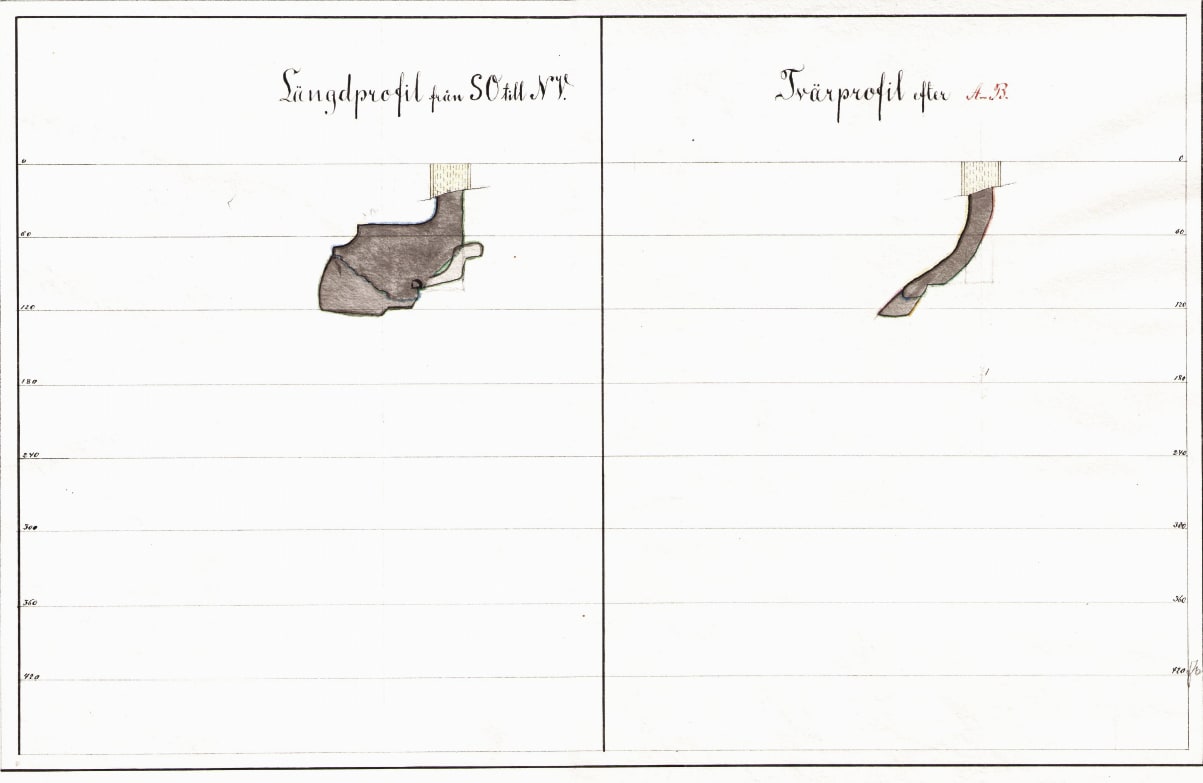 Längdprofil från SO till NV.
Tvärprofil efter A-B.
0
60
120
180
240
300
360
420
0
60
120
180
240
300
360
420